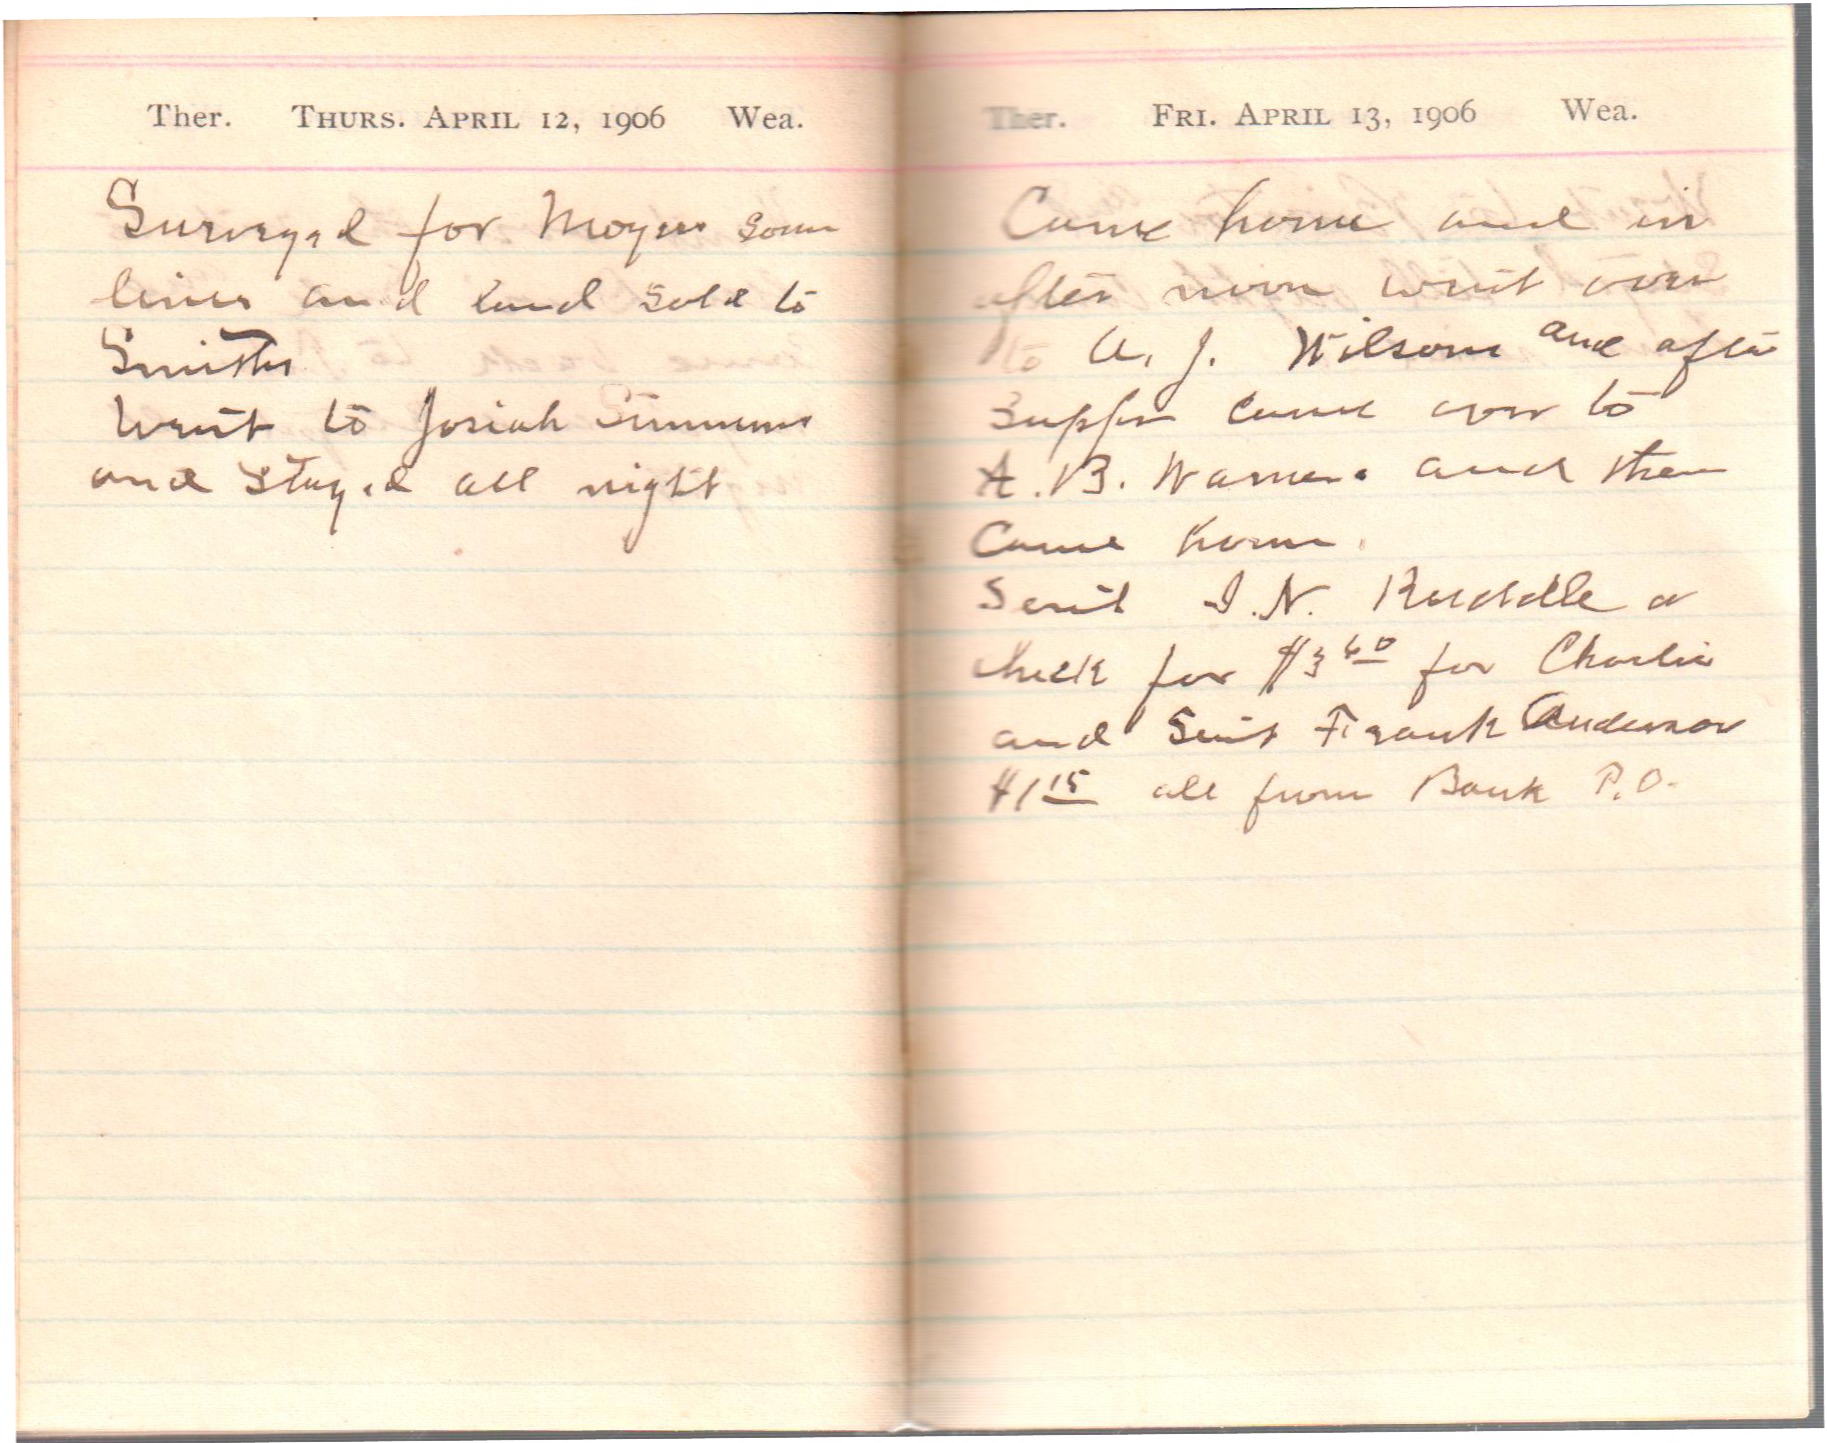 Ther. THURS. APRIL 12, 1906 Wea.
Surveyed for Moyers some
lines and land sold to
Smiths
Went to Josiah Simmons
and stayed all night
Ther. FRI. APRIL 13, 1906 Wea.
Came home and in
after noon went over
to A. J. Wilsons and after
supper came over to
A. B. Warners and then
Came home.
Sent I. N. Ruddle a
check for $3 60 for Charlie
and Sent Frank Anderson
$1 15 all from Bank P.O.